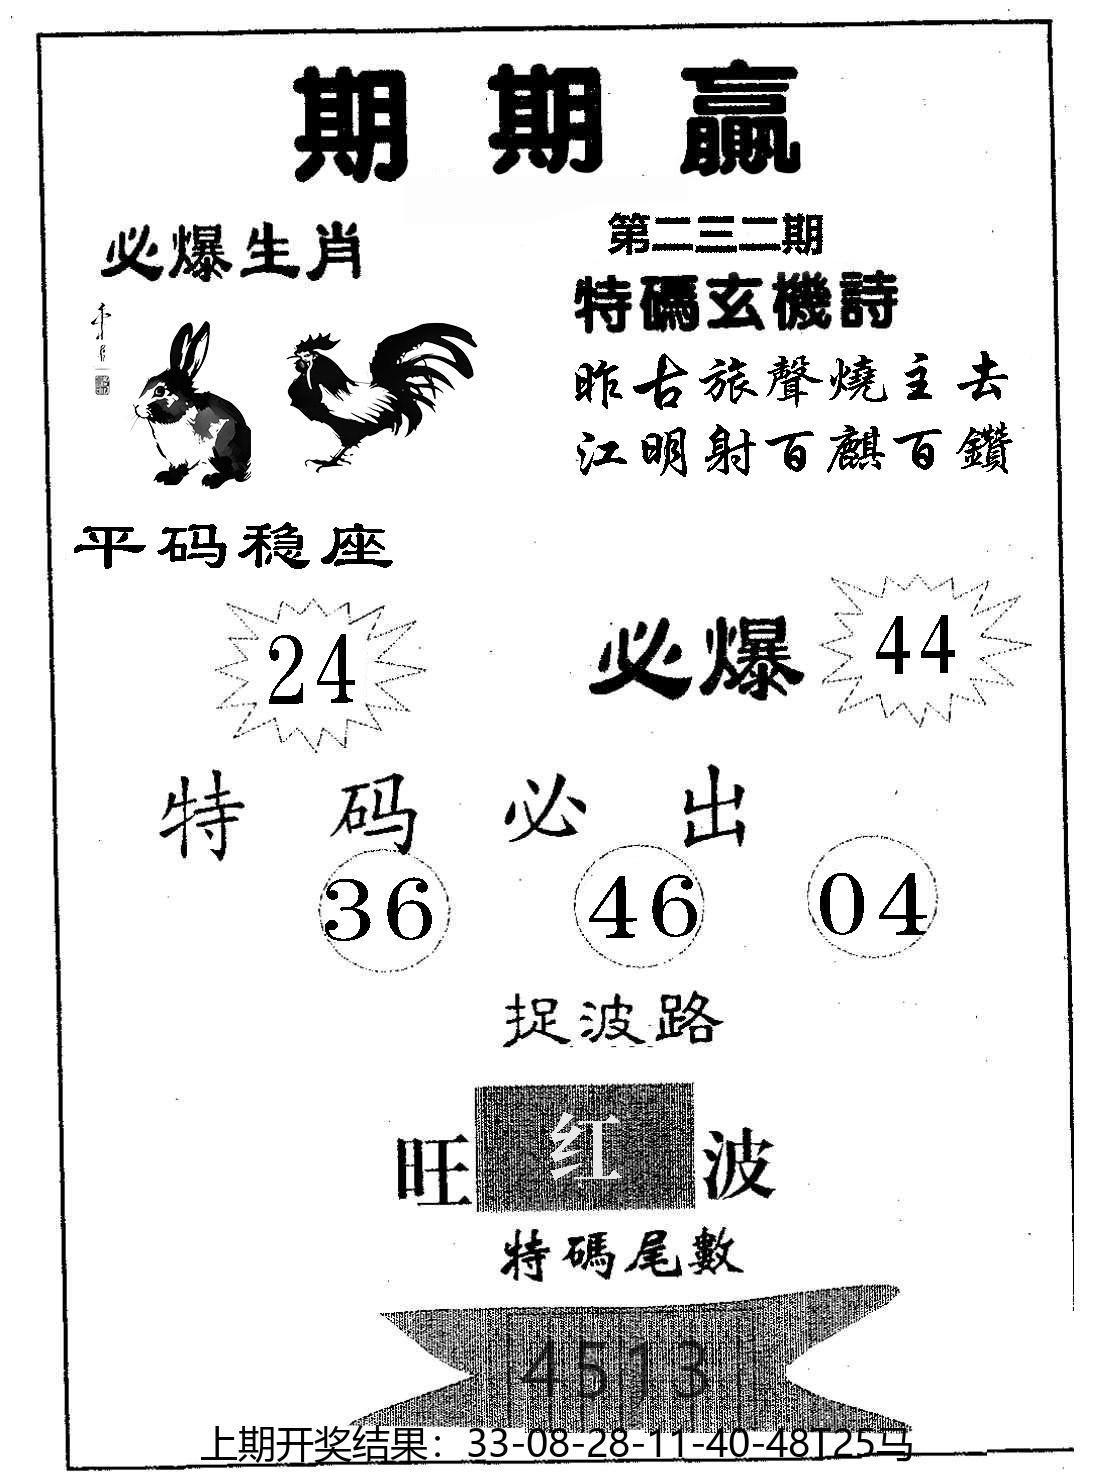 期期贏
必爆生肖
第二三二期
特碼玄機詩
昨古旅聲燒主去
江明射百麒百鑽
平码稳座
24
必爆
44
特码必出
36 46 04
捉波路
旺红波
特碼尾數
4513
上期开奖结果：33-08-28-11-40-48T25马